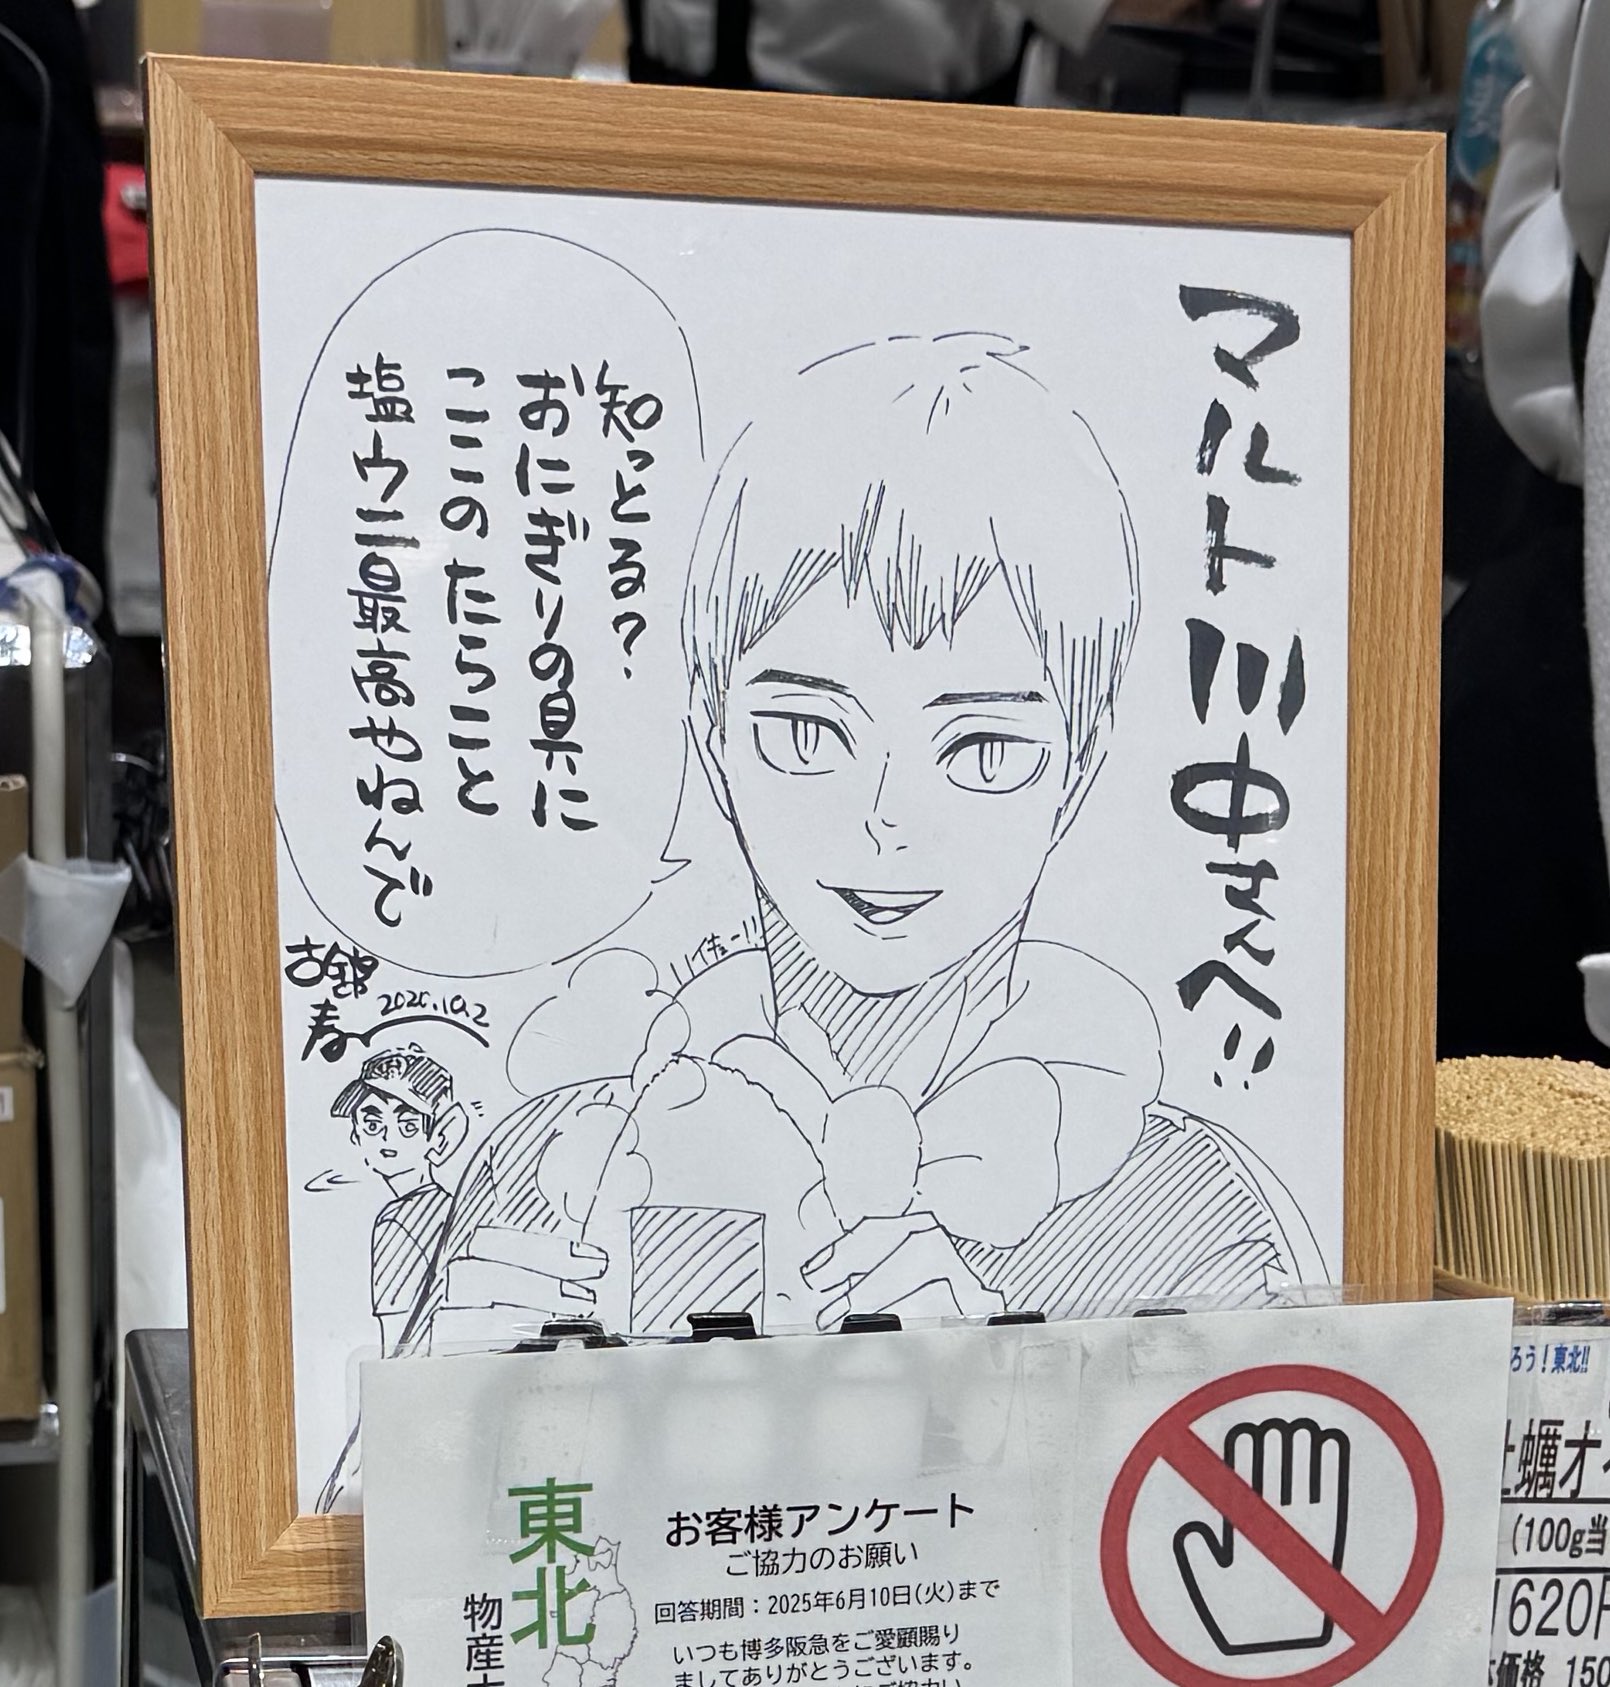 マルト川中さんへ!!
知っとる?
おにぎりの具に
ここのたらこと
塩ウニ最高やねんで
ハイキュー!!
古舘
春一
2020.10.2
東北
物産
お客様アンケート
ご協力のお願い
回答期間：2025年6月10日(火)まで
いつも博多阪急をご愛顧賜り
ましてありがとうございます。
ろう！東北!!
蠣オ
(100g当
1620円
価格 150